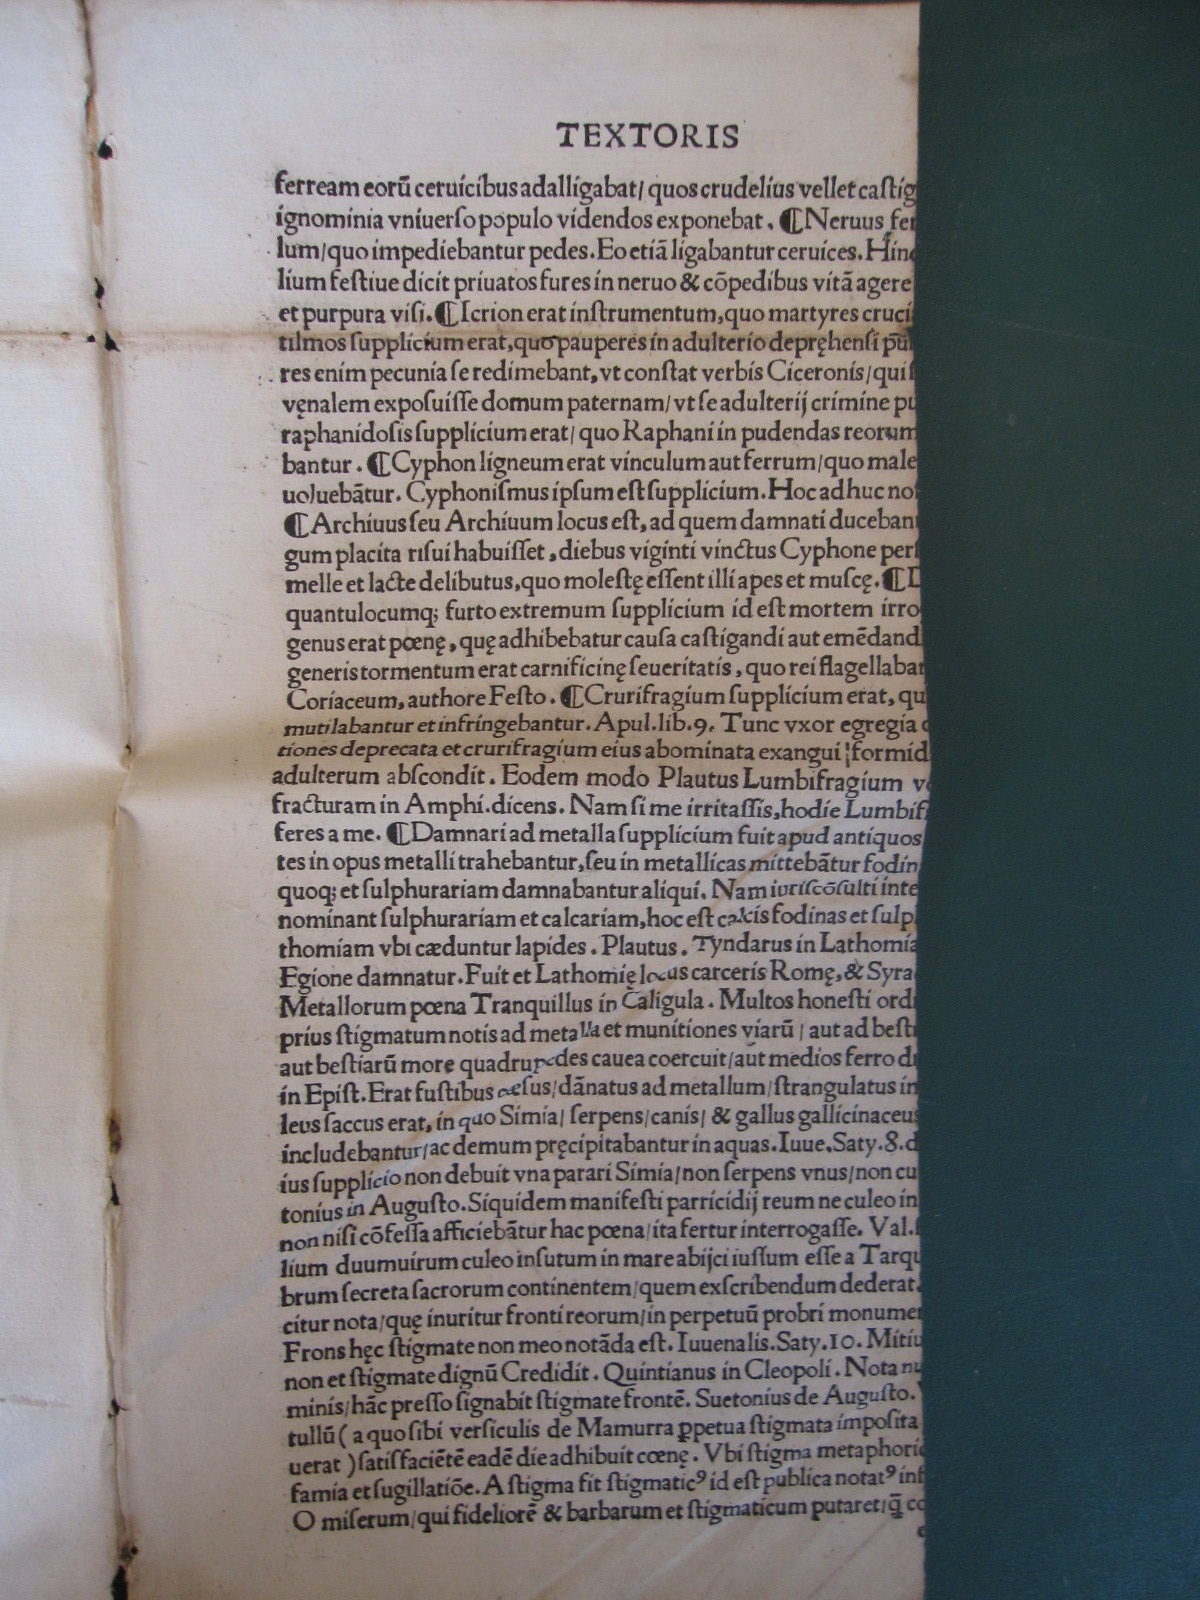 TEXTORIS
ferream eorū ceruicibus adalligabat/ quos crudelius vellet caſtig
ignominia vniuerſo populo videndos exponebat. ⸿Neruus fer
lum/quo impediebantur pedes. Eo etiā ligabantur ceruices. Hinc
lium feſtiue dicit priuatos fures in neruo & cōpedibus vitā agere
et purpura viſi. ⸿Icrion erat inſtrumentum, quo martyres cruci
tilmos ſupplicium erat, quo pauperes in adulterio depręhenſi pū
res enim pecunia ſe redimebant, vt conſtat verbis Ciceronis/ qui
vęnalem expoſuiſſe domum paternam/ vt ſe adulterij crimine pu
raphanidoſis ſupplicium erat/ quo Raphani in pudendas reorum
bantur. ⸿Cyphon ligneum erat vinculum aut ferrum/quo male
uoluebātur. Cyphoniſmus ipſum eſt ſupplicium. Hoc adhuc no
⸿Archiuus ſeu Archiuum locus eſt, ad quem damnati ducebant
gum placita riſui habuiſſet, diebus viginti vinctus Cyphone perſ
melle et lacte delibutus, quo moleſtę eſſent illi apes et muſcę. ⸿D
quantulocumq; furto extremum ſupplicium id eſt mortem irro
genus erat pœnę, quę adhibebatur cauſa caſtigandi aut emēdandi
generis tormentum erat carnificinę ſeueritatis, quo rei flagellaban
Coriaceum, authore Feſto. ⸿Crurifragium ſupplicium erat, qu
mutilabantur et infringebantur. Apul. lib. 9. Tunc vxor egregia
tiones deprecata et crurifragium eius abominata exangui formid
adulterum abſcondit. Eodem modo Plautus Lumbifragium vo
fracturam in Amphi. dicens. Nam ſi me irritaſſis, hodie Lumbif
feres a me. ⸿Damnari ad metalla ſupplicium fuit apud antiquos
tes in opus metalli trahebantur, ſeu in metallicas mittebātur fodin
quoq; et ſulphurariam damnabantur aliqui. Nam iuriſcōſulti inte
nominant ſulphurariam et calcariam, hoc eſt calcis fodinas et ſulp
thomiam vbi cæduntur lapides. Plautus. Tyndarus in Lathomia
Egione damnatur. Fuit et Lathomię locus carceris Romę, & Syra
Metallorum pœna Tranquillus in Caligula. Multos honeſti ordi
prius ſtigmatum notis ad metalla et munitiones viarū / aut ad beſti
aut beſtiarū more quadrupedes cauea coercuit/ aut medios ferro di
in Epiſt. Erat fuſtibus cæſus/ dānatus ad metallum/ ſtrangulatus in
leus ſaccus erat, in quo Simia/ ſerpens/canis/ & gallus gallicinaceus
includebantur/ ac demum pręcipitabantur in aquas. Iuue. Saty. 8. d
ius ſupplicio non debuit vna parari Simia/non ſerpens vnus/non cu
tonius in Auguſto. Siquidem manifeſti parricidij reum ne culeo in
non niſi cōfeſſa afficiebātur hac pœna/ ita fertur interrogaſſe. Val.
lium duumuirum culeo inſutum in mare abijci iuſſum eſſe a Tarqu
brum ſecreta ſacrorum continentem/ quem exſcribendum dederat.
citur nota/ quę inuritur fronti reorum/ in perpetuū probri monumen
Frons hęc ſtigmate non meo notāda eſt. Iuuenalis. Saty. 10. Mitiu
non et ſtigmate dignū Credidit. Quintianus in Cleopoli. Nota nu
minis/ hāc preſſo ſignabit ſtigmate frontē. Suetonius de Auguſto.
tullū ( a quo ſibi verſiculis de Mamurra ꝑpetua ſtigmata impoſita
uerat ) ſatiſfaciētē eadē die adhibuit cœnę. Vbi ſtigma metaphoric
famia et ſugillatiōe. A ſtigma fit ſtigmaticꝰ id eſt publica notatꝰ inf
O miſerum/ qui fideliorē & barbarum et ſtigmaticum putaret/ q̄ co